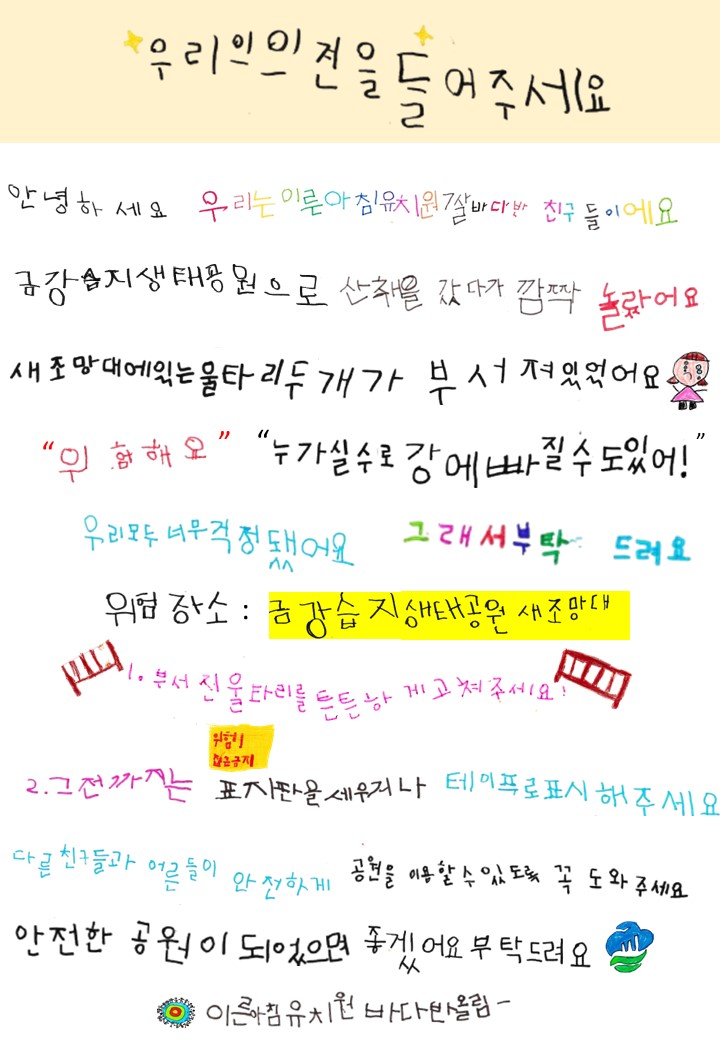 우리의 의견을 들어주세요
안녕하세요 우리는 이룬아침유치원 7살 바다반 친구들이에요
금강습지생태공원으로 산책을 갔다가 깜짝 놀랐어요
새조망대에 있는 울타리 두 개가 부서져 있었어요
“위험해요” “누가 실수로 강에 빠질 수도 있어!”
우리 모두 너무 걱정됐어요 그래서 부탁드려요
위험 장소 : 금강습지생태공원 새조망대
1. 부서진 울타리를 튼튼하게 고쳐주세요!
위험!
접근금지
2. 그전까지는 표지판을 세우거나 테이프로 표시해 주세요
다른 친구들과 어른들이 안전하게 공원을 이용할 수 있도록 꼭 도와주세요
안전한 공원이 되었으면 좋겠어요 부탁드려요
이른아침유치원 바다반 올림-